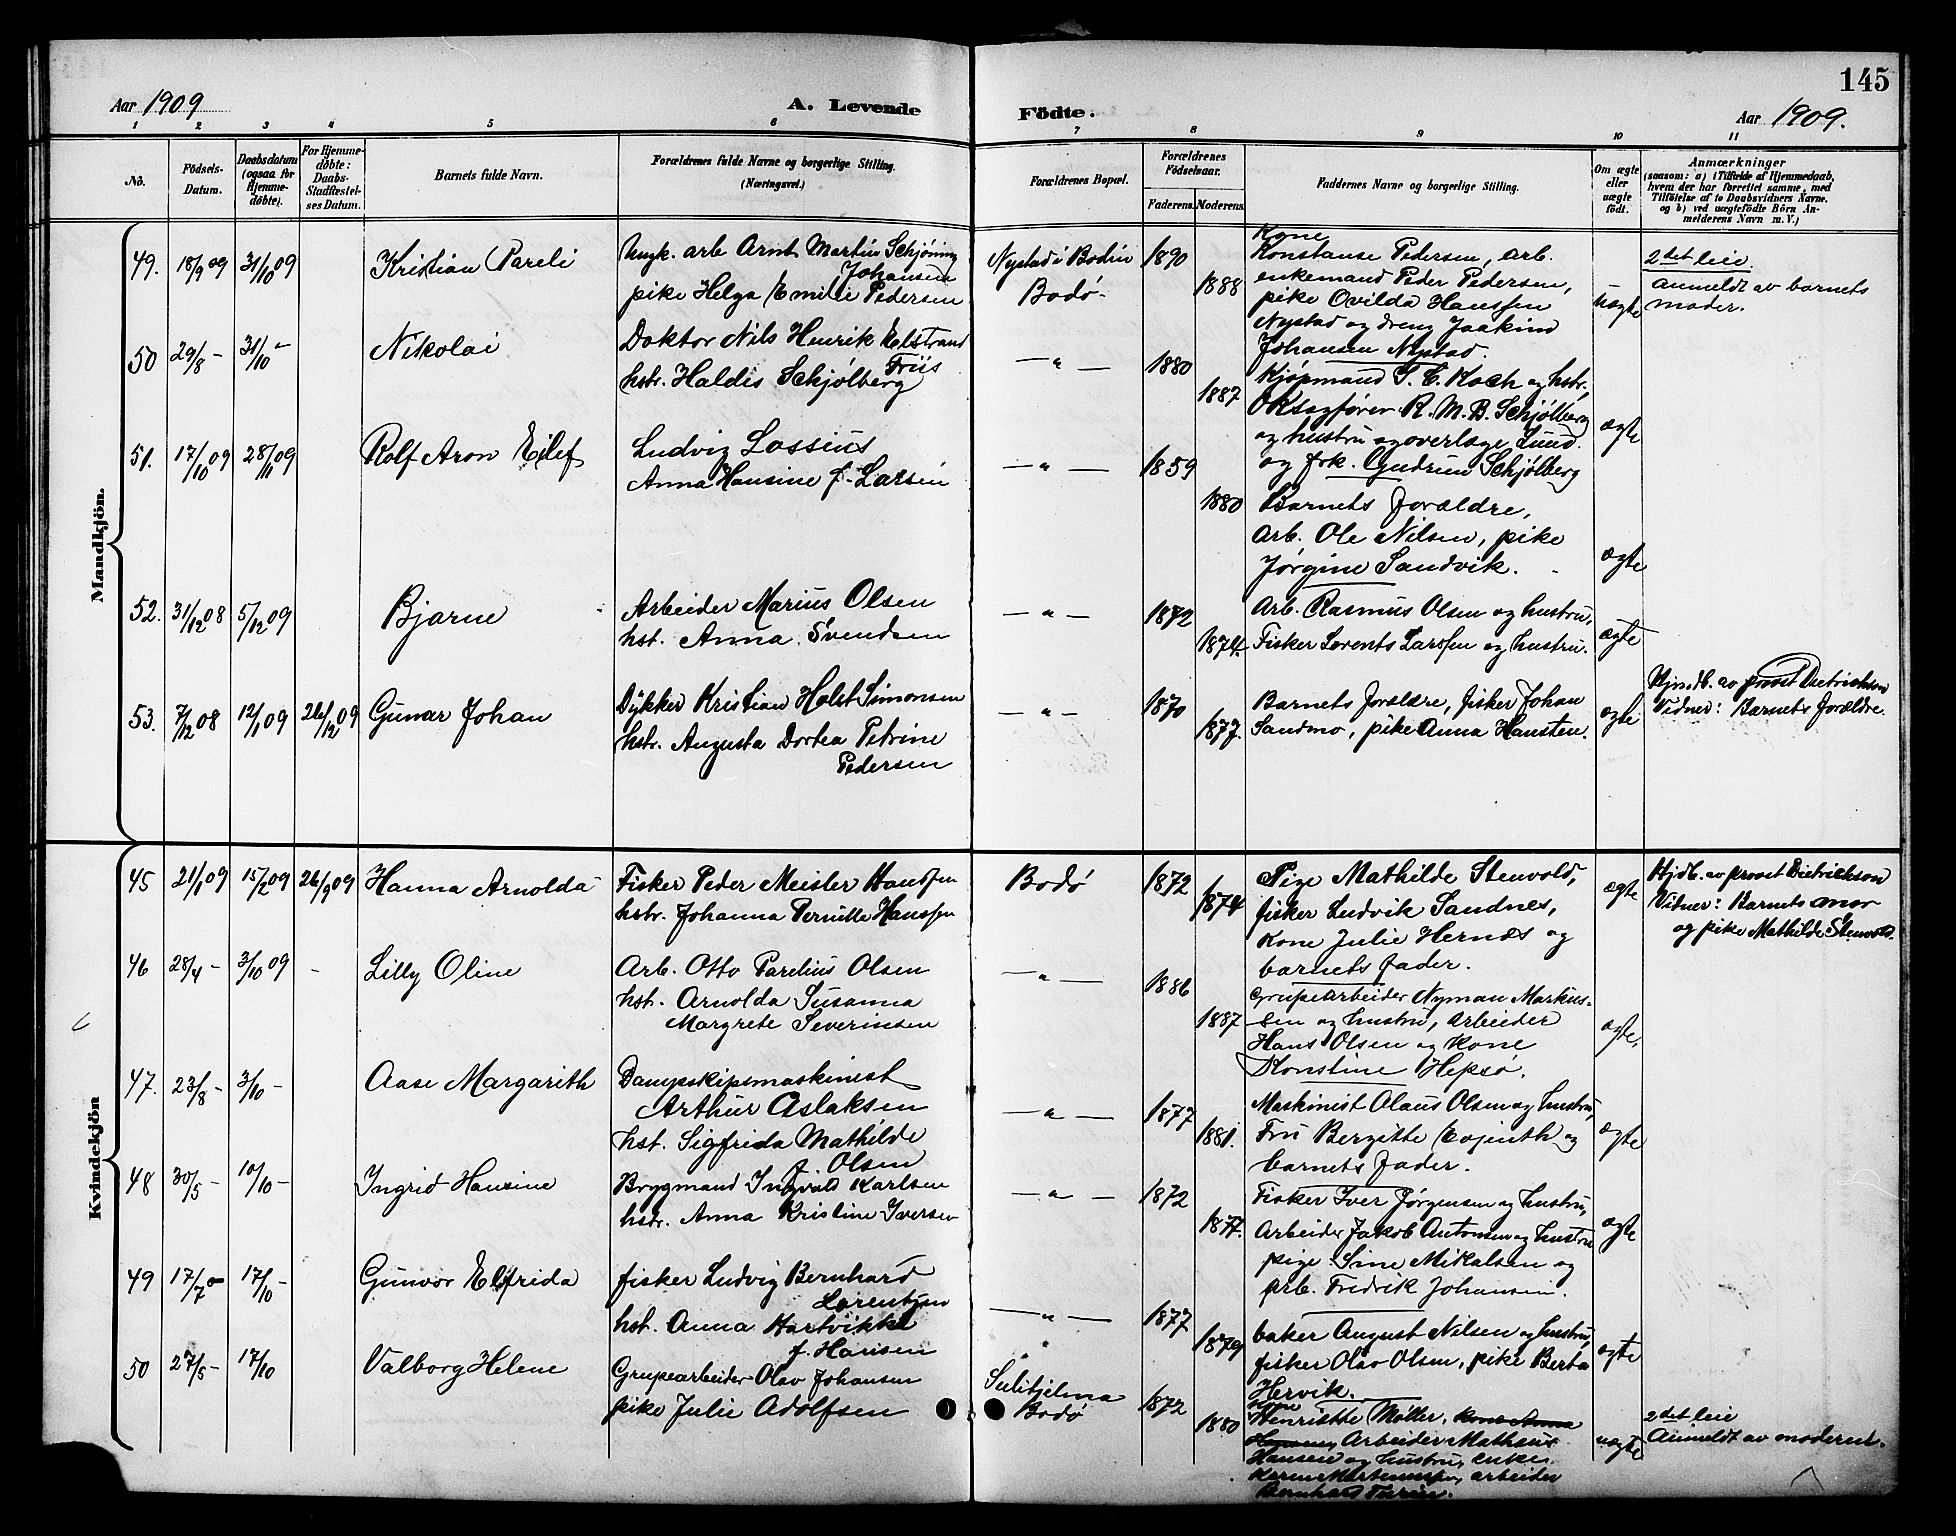 145
Aar 1909
A. Levende
Födte.
Aar 1909.
1 2 3 4 5 6 7 8 9 10 11
No.
Födsels-
Datum.
Daabsdatum
(ogsaa for
Hjemme-
döbte).
For Hjemme-
döbte:
Daabs-
Stadfestel-
ses Datum.
Barnets fulde Navn.
Forældrenes fulde Navne og borgerlige Stilling.
(Næringsvei.)
Forældrenes Bopæl.
Forældrenes
Födselsaar.
Faderens.
Moderens.
Faddernes Navne og borgerlige Stilling.
Om ægte
eller
uægte
födt.
Anmærkninger
(saasom: a) i Tilfælde af Hjemmedaab,
hvem der har forrettet samme, med
Tilföielse af to Daabsvidners Navne.
og b) ved uægtefödte Börn An-
melderens Navn m. V.)
Mandkjön.
49. 18/9 09 31/10 09
Kristian Pareli
Ungk. arb Arnt Martin Schjøning
Johansen
pike Helga Emilie Pedersen
Nystad i Bodin
Bodø.
1890
1888
Kone
Konstanse Pedersen, arb.
enkemand Peder Pedersen,
pike Ovilda Hanssen
Nystad og dreng Joakim
Johansen Nystad.
uægte
2det leie.
Anmeldt av barnets
moder.
50 29/8 – 31/10 –
Nikolai
Doktor Nils Henrik Elstrand
Friis
hstr. Haldis Schjølberg
— " —
1880
1887
Kjøpmand J. C. Koch og hstr.
ORsagfører R. M. B. Schjølberg
og hustru og overlæge Lund.
og frk. Gudrun Schjølberg
ægte
51. 17/10 09 28/11 09
Rolf Aron Eilef
Ludvig Lossius
Anna Hansine f. Larsen
— " —
1859
1880
Barnets forældre,
Arb. Ole Nilsen, pike
Jørgine Sandvik.
ægte
52. 31/12 08 5/12 09
Bjarne
Arbeider Marius Olsen
hst. Anna Svendsen
— " —
1872
1874.
Arb. Rasmus Olsen og hustru,
Fisker Lorents Larssen og hustru.
ægte
53. 7/12 08 12/1 09 26/12 09
Gunar Johan
Dykker Kristian Holst Simonsen
hstr. Augusta Dortea Petrine
Pedersen
— " —
1870
1877.
Barnets forælre, fisker Johan
Sandmo, pike Anna Hansten.
ægte
Hjmdb. av provst Dietrichson
Vidner: Barnets forældre.
Kvindekjön
45 21/1 09 15/2 09 26/9 09
Hanna Arnolda
Fisker Peder Meisler Hanssen
hstr. Johanna Pernille Hanssen
Bodø
1872
1874
Pige Mathilde Stenvold,
fisker Ludvik Sandnes,
kone Julie Hernes og
barnets fader.
ægte
Hjdb. av provst Dietrichson
Vidner: Barnets mor
og pike Mathilde Stenvold.
46 28/4 – 3/10 09 -
Lilly Oline
Arb. Otto Parelius Olsen
hst. Arnolda Susanna
Margrete Severinsen
— " —
1886
1887
Grupearbeider Nyman Markus-
sen og hustru, arbeider
Hans Olsen og kone
Konstine Hepsø.
ægte,
47. 23/8 – 3/10 –
Aase Margarith
Dampskipsmaskinist
Arthur Aslaksen
hst. Sigfrida Mathilde
f. Olsen
— " —
1877
1881.
Maskinist Olaus Olsen og hustru,
Fru Bergitte og
barnets fader.
ægte
48 30/5 – 10/10 –
Ingrid Hansine
Brygmand Ingvald Karlsen
hstr. Anna Kristine Iversen
— " —
1872
1877.
Fisker Iver Jørgensen og hustru,
Arbeider Jakob Antonsen og hustru
pige Sine Mikalsen og
arb. Fredrik Johansen.
ægte
49 17/7 – 17/10 –
Gunvor Elfrida
fisker Ludvig Bernhard
Lorentzen
hst. Anna Hartvikke
f. Hansen
— " —
1877
1879
baker August Nilsen og hustru,
fisker Olav Olsen, pike Berta
Hervik.
ægte
50 27/5 – 17/10
Valborg Helene
Grupearbeider Olav Johansen
pike Julie Adolfsen
Sulitjelma
Bodø
1872
1880
Kone
Henriette Møller, kone Anna
Hansen, Arbeider Mathæus
Hansen og hustru, enke
Karen Martinussen, arbeider
Bernhard
uægte
2det leie
Anmeldt av moderen.